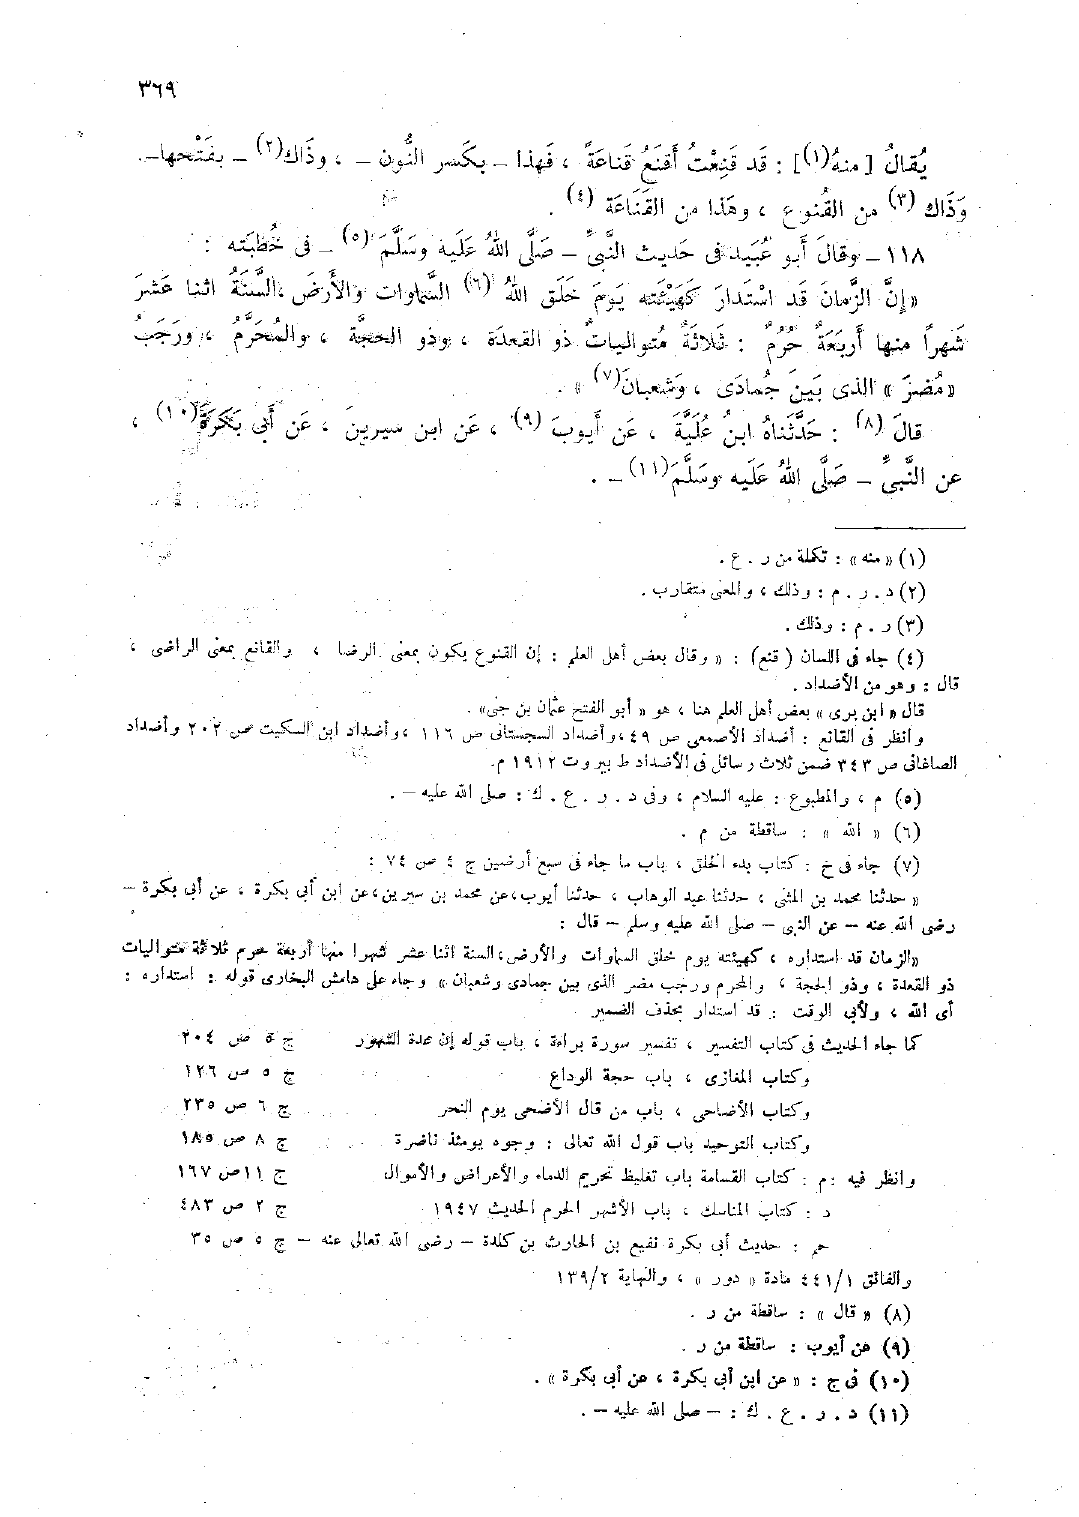 ٣٦٩
يُقالُ [ منهُ(١)] : قَد قَنِعْتُ أَقنَعُ قَناعَةً ، فَهذا – بكَسر النُّون – ، وذَاك(٢) – بفَتْحها–.
وَذَاك (٣) من القُنوع ، وهَذا من القَنَاعَة (٤) .
١١٨ – وقالَ أَبو عُبَيد فى حَديث النَّبىِّ – صَلَّى اللهُ عَلَيه وسَلَّمَ(٥) – فى خُطبَته :
« إنَّ الزَّمانَ قَد اسْتَدارَ كَهَيْئَته يَومَ خَلَق اللهُ (٦) السَّماوات والأَرضَ ،السَّنَةُ اثنا عَشَرَ
شَهراً منها أَربَعَةٌ حُرُمٌ : ثَلاثَةٌ مُتواليات ذو القعدَة ، وذو الحجَّة ، والمُحَرَّمُ ، ورَجَبُ
«مُضرَ » الذى بَينَ جُمادَى ، وَشَعبانَ(٧) » .
قالَ (٨) : حَدَّثَناهُ ابنُ عُلَيَّةَ ، عَن أَيوبَ (٩) ، عَن ابن سيرينَ ، عَن أَبى بَكرَةَ(١٠) ،
عن النَّبىِّ – صَلَّى اللهُ عَلَيه وسَلَّمَ(١١) – .
(١) « منه » : تكملة من ر . ع .
(٢) د . ر . م : وذلك ، والمعنى متقارب .
(٣) ر . م : وذلك .
(٤) جاء فى اللسان ( قنع ) : « وقال بعض أهل العلم : إن القنوع يكون بمعنى الرضا ، والقانع بمعنى الراضى ،
قال : وهو من الأضداد .
قال « ابن برى » بعض أهل العلم هنا ، هو « أبو الفتح عثمان بن جنى» .
وانظر فى القانع : أضداد الأصمعى ص ٤٩ ،وأضداد السجستانى ص ١١٦ ،وأضداد ابن السكيت ص ٢٠٢ وأضداد
الصاغانى ص ٢٤٣ ضمن ثلاث رسائل فى الأضداد ط بيروت ١٩١٢ م.
(٥) م ، والمطبوع : عليه السلام ، وفى د . ر . ع . ك : صلى الله عليه – .
(٦) « الله » : ساقطة من م .
(٧) جاء فى خ : كتاب بدء الخلق ، باب ما جاء فى سبع أرضين ج ٤ ص ٧٤ :
« حدثنا محمد بن المثنى ، حدثنا عبد الوهاب ، حدثنا أيوب ،عن محمد بن سيرين ،عن ابن أبى بكرة ، عن أبى بكرة –
رضى الله عنه – عن النبى – صلى الله عليه وسلم – قال :
«الزمان قد استداره ، كهيئته يوم خلق السماوات والأرض ،السنة اثنا عشر شهرا منها أربعة حرم ثلاثة متواليات
ذو القعدة ، وذو الحجة ، والمحرم ورجب مضر الذى بين جمادى وشعبان » وجاء على هامش البخارى قوله : استداره :
أى الله ، ولأبى الوقت : قد استدار بحذف الضمير
كما جاء الحديث فى كتاب التفسير ، تفسير سورة براءة ، باب قوله إن عدة الشهور ج ٥ ص ٢٠٤
وكتاب المغازى ، باب حجة الوداع ج ٥ ص ١٢٦
وكتاب الأضاحى ، باب من قال الأضحى يوم النحر ج ٦ ص ٢٣٥
وكتاب التوحيد باب قول الله تعالى : وجوه يومئذ ناضرة ج ٨ ص ١٨٥
وانظر فيه :م : كتاب القسامة باب تغليظ تحريم الدماء والأعراض والأموال ج ١١ ص ١٦٧
د : كتاب المناسك ، باب الأشهر الحرم الحديث ١٩٤٧ ج ٢ ص ٤٨٣
حم : حديث أبى بكرة نفيع بن الحارث بن كلدة – رضى الله تعالى عنه – ج ٥ ص ٣٥
والفائق ٤٤١/١ مادة « دور » ، والنهاية ١٣٩/٢
(٨) « قال » : ساقطة من ر .
(٩) عن أيوب : ساقطة من ر .
(١٠) فى ج : « عن ابن أبى بكرة ، عن أبى بكرة » .
(١١) د . ر . ع . ك : – صلى الله عليه – .